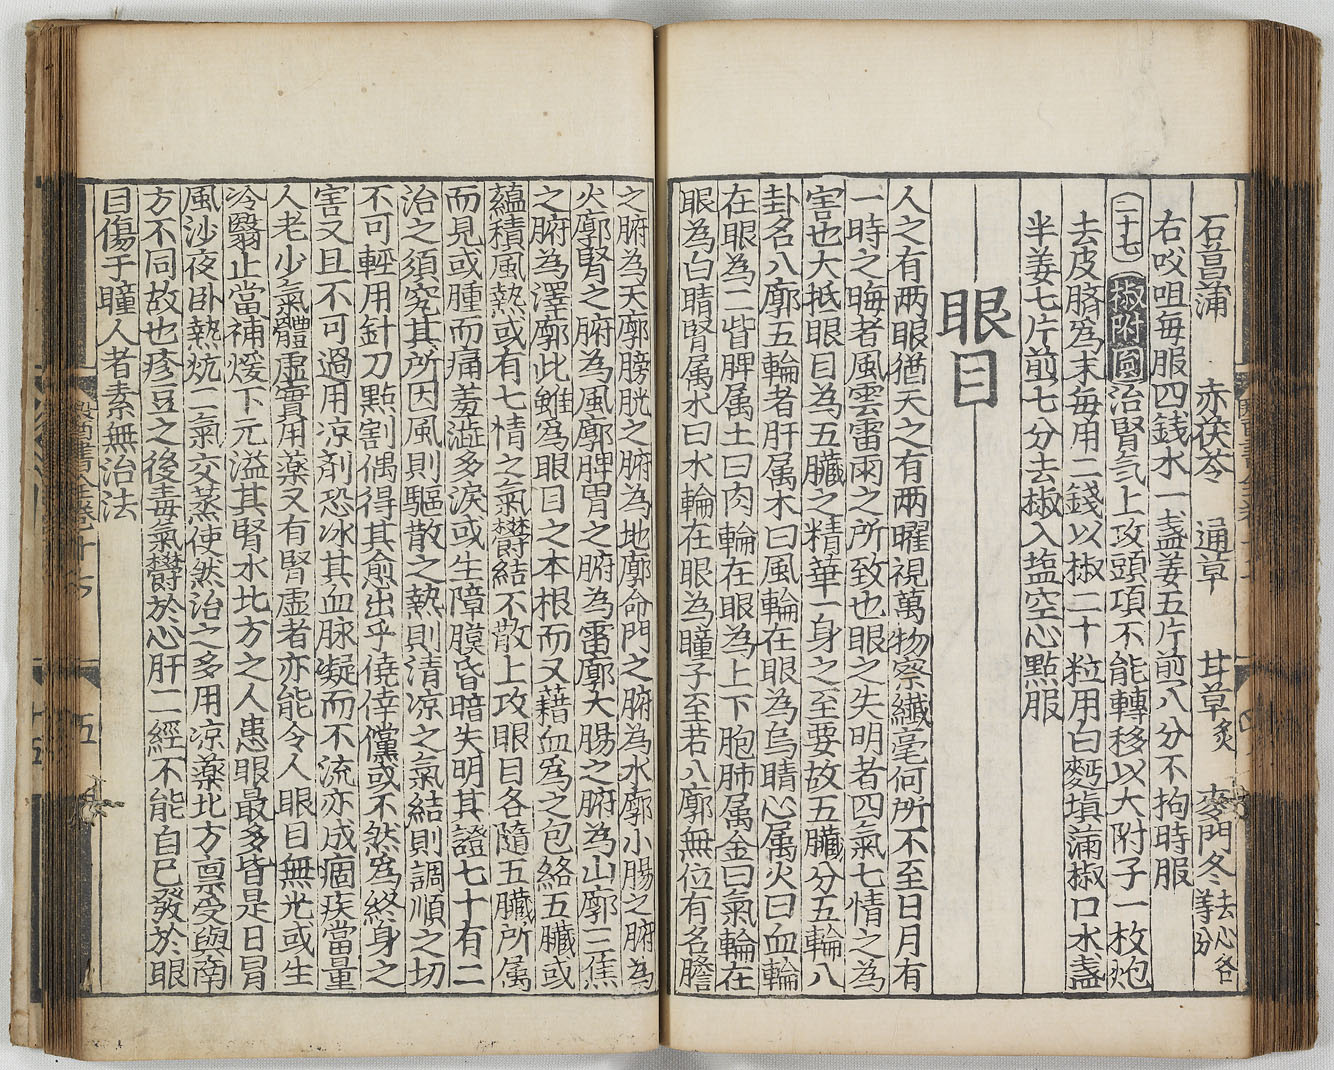 石菖蒲 赤茯苓 通草 甘草炙 麥門冬去心各等分
右㕮咀每服四錢水一盞姜五片前八分不拘時服
二十七 椒附圓 治腎氣上攻頭項不能轉移以大附子一枚炮
去皮臍為末每用二錢以椒二十粒用白麪填蒲椒口水盞
半姜七片前七分去椒入塩空心點服
眼目
人之有兩眼猶天之有兩曜視萬物察纖毫何所不至日月有
一時之晦者風雲雷雨之所致也眼之失明者四氣七情之為
害也大抵眼目為五臟之精華一身之至要故五臟分五輪八
卦名八廓五輪者肝属木曰風輪在眼為烏睛心属火曰血輪
在眼為二眥脾属土曰肉輪在眼為上下胞肺属金曰氣輪在
眼為白睛腎属水曰水輪在眼為瞳子至若八廓無位有名膽
之腑為天廓膀胱之腑為地廓命門之腑為水廓小腸之腑為
火廓腎之腑為風廓脾胃之腑為雷廓大腸之腑為山廓三焦
之腑為澤廓此雖為眼目之本根而又藉血為之包絡五臟或
蘊積風熱或有七情之氣欝結不散上攻眼目各隨五臟所属
而見或腫而痛羞澁多淚或生障膜昏暗失明其證七十有二
治之須究其所因風則驅散之熱則清凉之氣結則調順之切
不可輕用針刀點割偶得其愈出乎僥倖儻或不然為終身之
害又且不可過用凉剤恐冰其血脉凝而不流亦成痼疾當量
人老少氣體虛實用藥又有腎虛者亦能令人眼目無光或生
冷翳止當補煖下元溢其腎水北方之人患眼最多皆是日冒
風沙夜卧熱炕二氣交蒸使然治之多用凉藥北方禀受與南
方不同故也疹豆之後毒氣欝於心肝二經不能自已發於眼
目傷于瞳人者素無治法
五